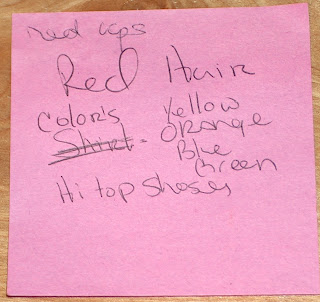 red lips
Red Hair
Color's Yellow
Shirt - Orange
Blue
Green
Hi top shoses